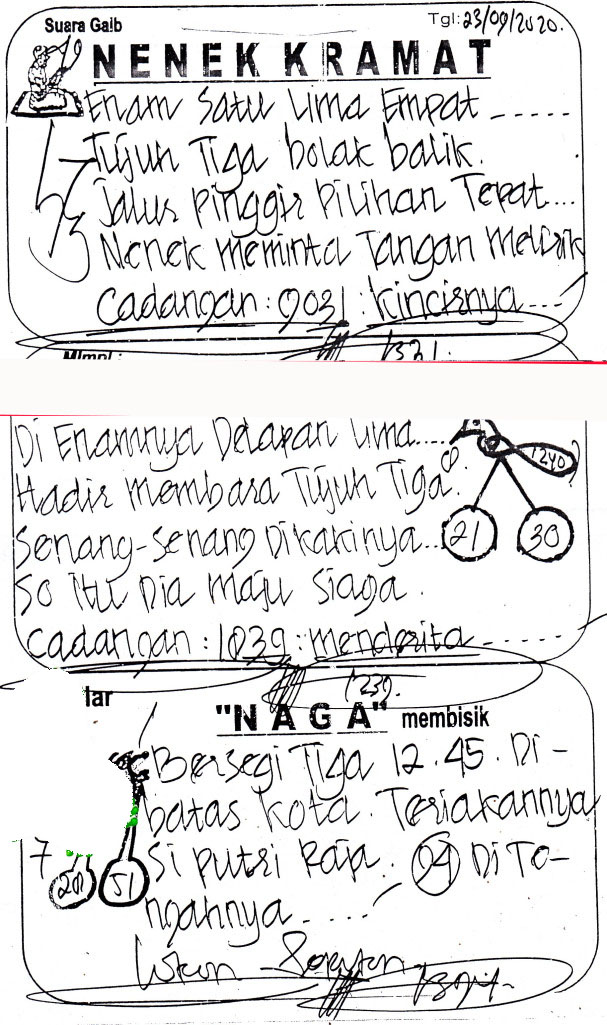 Suara Gaib
Tgl: 23/09/2020.
NENEK KRAMAT
Enam Satu Lima Empat -----
Tujuh Tiga bolak balik.
Jalur Pinggir Pilihan Tepat...
Nenek meminta Tangan Melirik
Cadangan: 9031: Kincirnya ---
Mimpi :
1321.
Di Enamnya Delapan Lima....
1240
Hadir Membara Tujuh Tiga.
Senang-Senang Dikakinya...
21 30
So itu Dia Maju Siaga.
Cadangan: 1039: menderita -----
1239.
lar
"NAGA" membisik
Bersegi Tiga 12.45. Di-
batas Kota. Teriakannya
7
Si putri Raja. 94 Di Te-
201 51
ngahnya ....